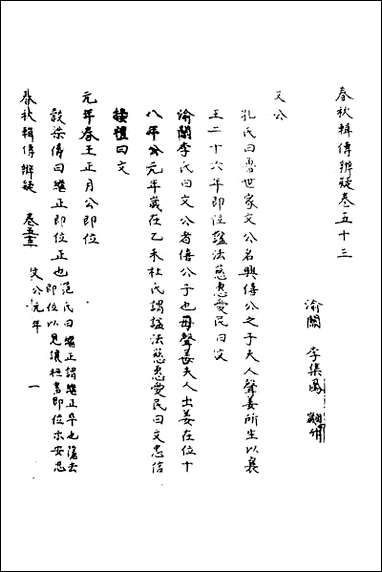 春秋輯傳辨疑卷五十三
渝關 李集鳳 翽升
文公
孔氏曰魯世家文公名興僖公之子夫人聲姜所生以襄
王二十六年即位諡法慈惠愛民曰文
渝關李氏曰文公者僖公子也母聲姜夫人出姜在位十
八年公元年歲在乙未杜氏謂諡法慈惠愛民曰文忠信
接禮曰文
元年春王正月公即位
穀梁傳曰繼正即位正也范氏曰繼正謂繼正卒也隱去
即位以見讓桓書即位示安忍
春秋輯傳辨疑 卷五十三 文公元年 一